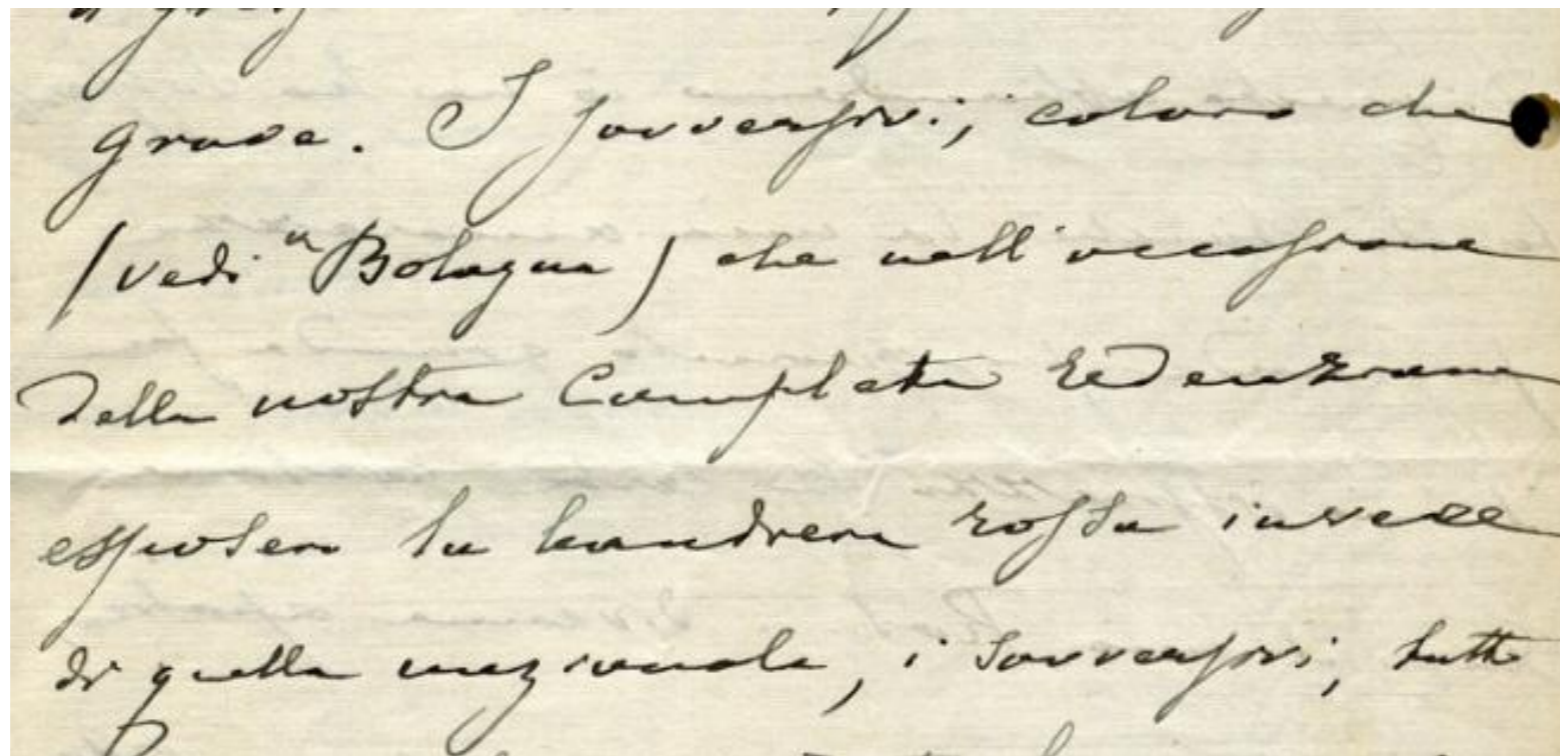 grave. I sovversivi, coloro che
(vedi a Bologna) che nell'occasione
della nostra completa redenzione
esposero la bandiera rossa invece
di quella nazionale, i sovversivi, tutti